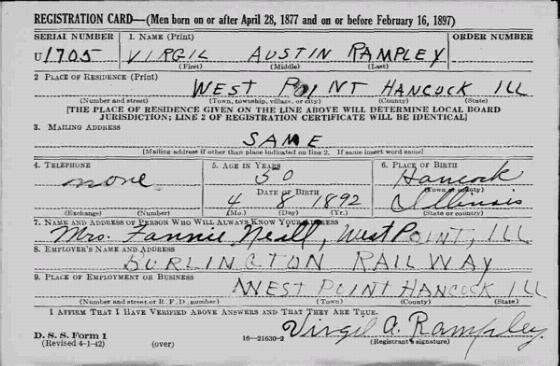 REGISTRATION CARD—(Men born on or after April 28, 1877 and on or before February 16, 1897)
SERIAL NUMBER 1. NAME (Print) ORDER NUMBER
U 1705 VIRGIL AUSTIN RAMPLEY
(First) (Middle) (Last)
2. PLACE OF RESIDENCE (Print)
WEST POINT HANCOCK ILL
(Number and street) (Town, township, village, or city) (County) (State)
[THE PLACE OF RESIDENCE GIVEN ON THE LINE ABOVE WILL DETERMINE LOCAL BOARD
JURISDICTION; LINE 2 OF REGISTRATION CERTIFICATE WILL BE IDENTICAL]
3. MAILING ADDRESS
SAME
[Mailing address if other than place indicated on line 2. If same insert word same]
4. TELEPHONE 5. AGE IN YEARS 6. PLACE OF BIRTH
none 50 Hancock
DATE OF BIRTH (Town or county)
4 8 1892 Illinois
(Exchange) (Number) (Mo.) (Day) (Yr.) (State or country)
7. NAME AND ADDRESS OF PERSON WHO WILL ALWAYS KNOW YOUR ADDRESS
Mrs. Fannie Neall, West Point, ILL
8. EMPLOYER'S NAME AND ADDRESS
BURLINGTON RAILWAY
9. PLACE OF EMPLOYMENT OR BUSINESS
WEST POINT HANCOCK ILL
(Number and street or R. F. D. number) (Town) (County) (State)
I AFFIRM THAT I HAVE VERIFIED ABOVE ANSWERS AND THAT THEY ARE TRUE.
D. S. S. Form 1
(Revised 4-1-42) (over) 16—21630-2 Virgil A. Rampley
(Registrant's signature)